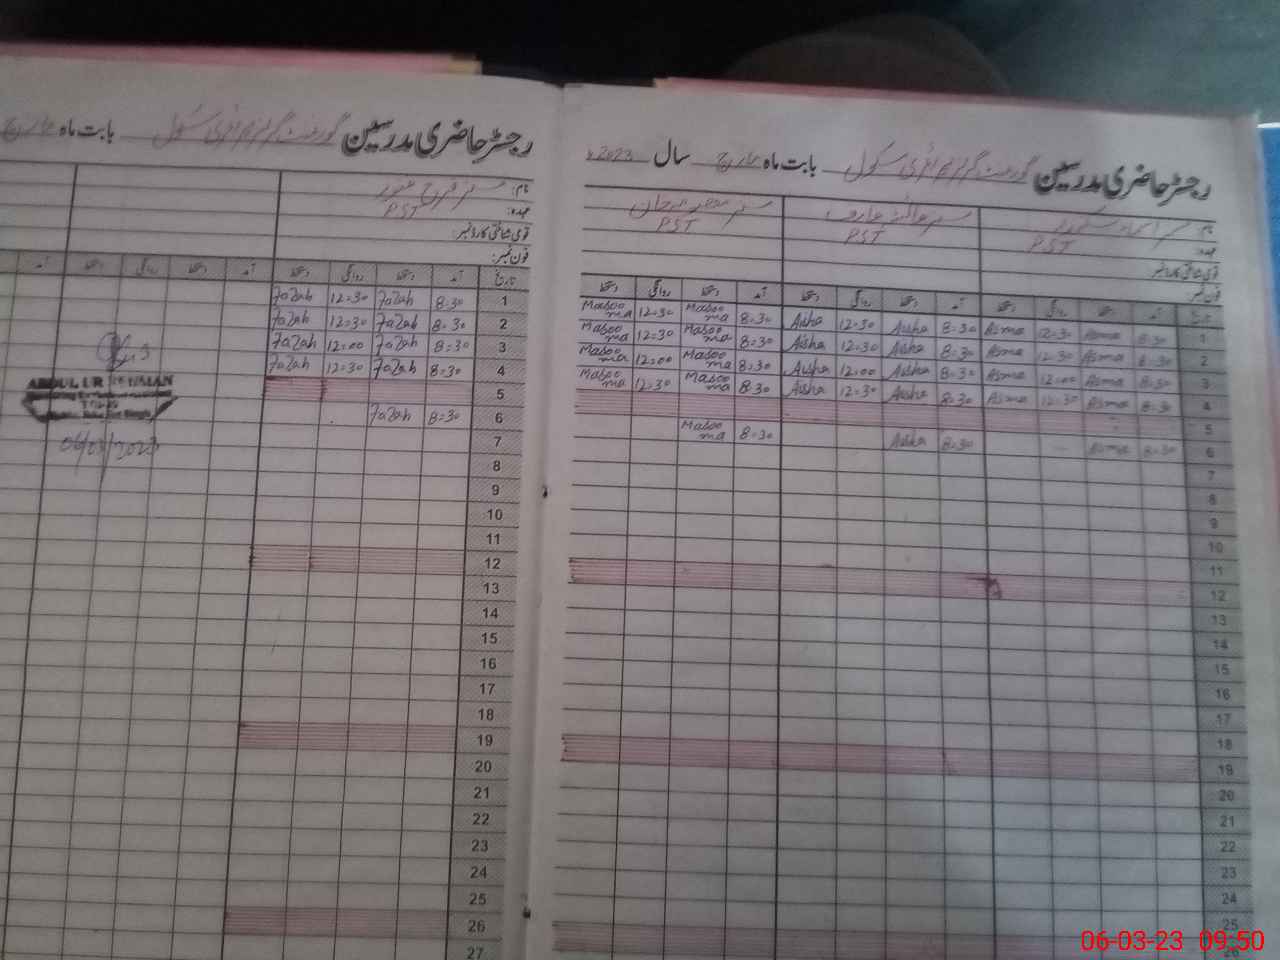 رجسٹر حاضری مدرسین گورنمنٹ گرلز پرائمری سکول بابت ماہ مارچ سال 2023ء
نام:
عہدہ: PST PST PST
قومی شناختی کارڈ نمبر:
فون نمبر:
تاریخ آمد دستخط روانگی دستخط آمد دستخط روانگی دستخط آمد دستخط روانگی دستخط
1 8:30 Asma 12:30 Asma 8:30 Aisha 12:30 Aisha 8:30 Masooma 12:30 Masooma
2 8:30 Asma 12:30 Asma 8:30 Aisha 12:30 Aisha 8:30 Masooma 12:30 Masooma
3 8:30 Asma 12:00 Asma 8:30 Aisha 12:00 Aisha 8:30 Masooma 12:00 Masooma
4 8:30 Asma 12:30 Asma 8:30 Aisha 12:30 Aisha 8:30 Masooma 12:30 Masooma
5
6 8:30 Asma 8:30 Aisha 8:30 Masooma
7
8
9
10
11
12
13
14
15
16
17
18
19
20
21
22
23
24
25
26
رجسٹر حاضری مدرسین گورنمنٹ گرلز پرائمری سکول بابت ماہ مارچ
نام:
عہدہ: PST
قومی شناختی کارڈ نمبر:
فون نمبر:
تاریخ آمد دستخط روانگی دستخط آمد دستخط روانگی دستخط آمد
1 8:30 7a2ah 12:30 7a2ah
2 8:30 7a2ah 12:30 7a2ah
3 8:30 7a2ah 12:00 7a2ah
4 8:30 7a2ah 12:30 7a2ah
5
6 8:30 7a2ah
7
8
9
10
11
12
13
14
15
16
17
18
19
20
21
22
23
24
25
26
27
ABDUL UR REHMAN
06/03/2023
06-03-23 09:50